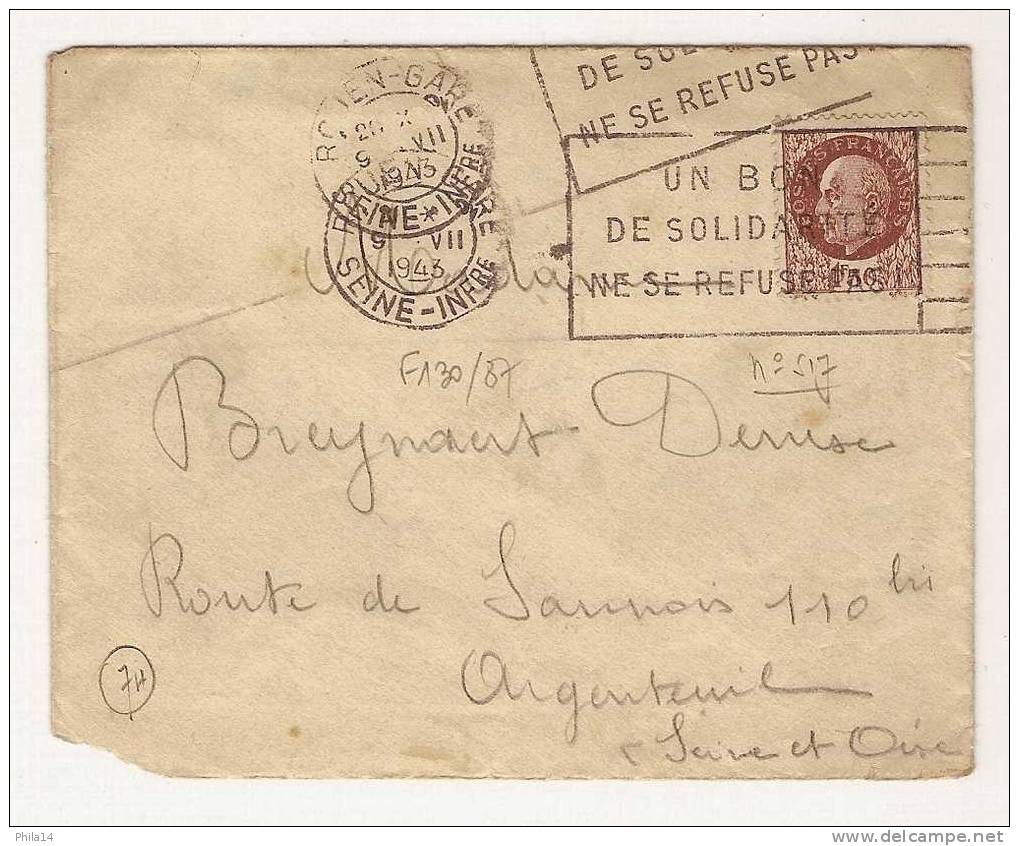 DE SOL
NE SE REFUSE PAS
ROUEN-GARE
1943
SEINE-INFRE
9 VII
1943
SEINE-INFRE
UN BON
DE SOLIDARITÉ
NE SE REFUSE PAS
POSTES FRANÇAISES
1F50
F130/87
n° 517
Breynaert Denise
Route de Sannois 110 bis
Argenteuil
Seine et Oise
7H
Phila14
delcampe.net